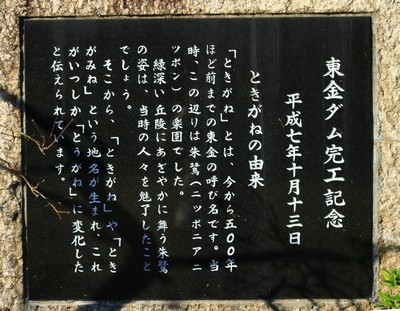 東金ダム完工記念
平成七年十月十三日
ときがねの由来
「ときがね」とは、今から五〇〇年
ほど前までの東金の呼び名です。当
時、この辺りは朱鷺(ニッポニアニ
ツポン)の楽園でした。
緑深い丘陵にあざやかに舞う朱鷺
の姿は、当時の人々を魅了したこと
でしょう。
そこから、「ときがね」や「とき
がみね」という地名が生まれ、これ
がいつしか「とうがね」に変化した
と伝えられています。